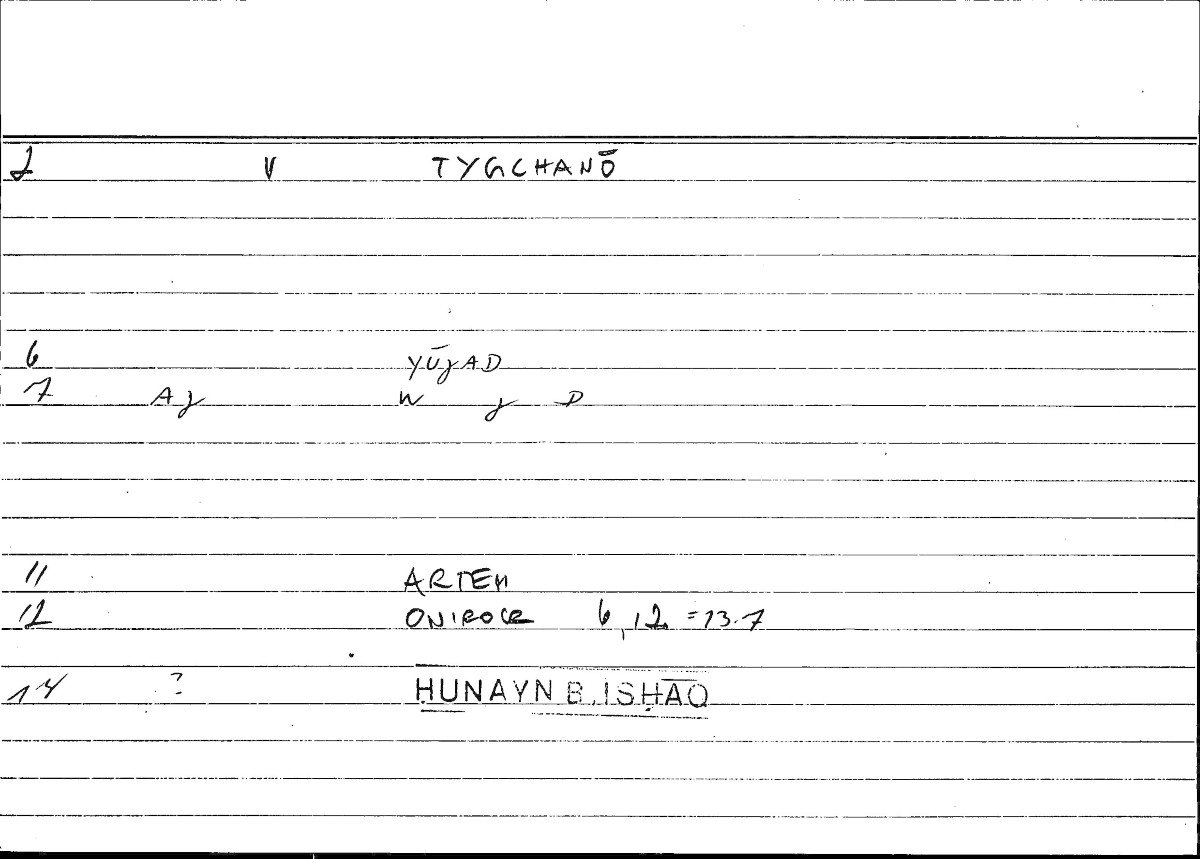 2 V TYGCHANŌ
6 YŪJAD
7 AJ W J D
11 ARTEM
12 ONIROCR 6,12 = 13.7
14 ? ḤUNAYN B. ISḤĀQ